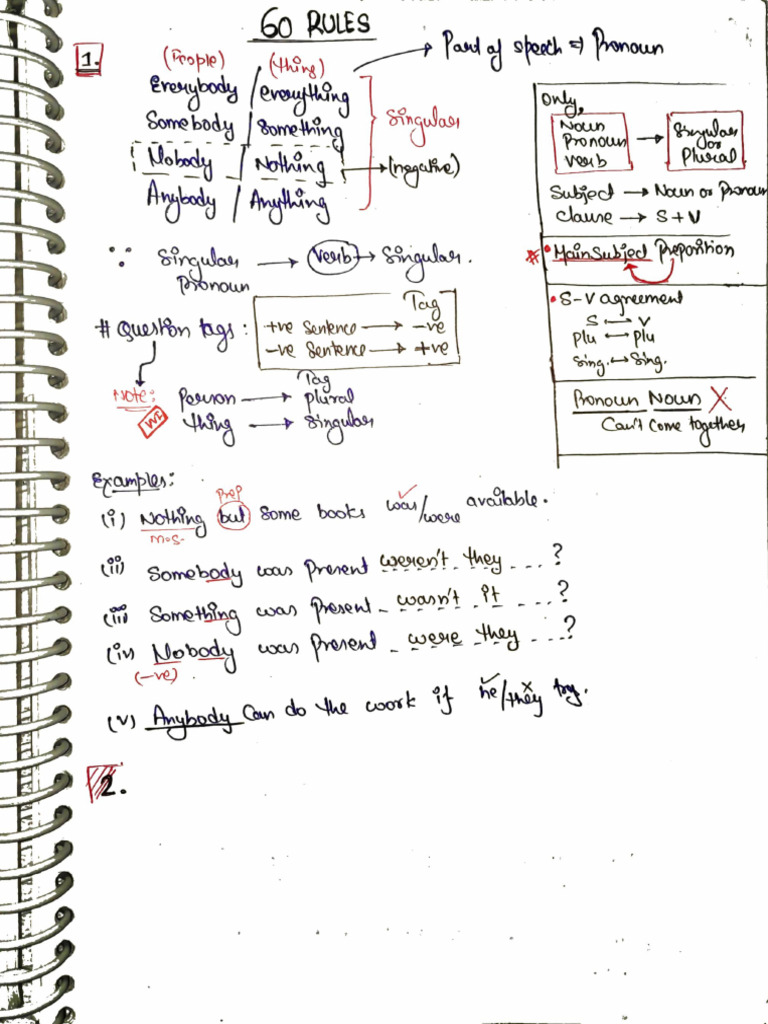 60 RULES
1.
(People) (thing) → Part of speech ⇒ Pronoun
Everybody / everything
Somebody / Something
Nobody / Nothing → (negative)
Anybody / Anything
Singular
∵ Singular Pronoun → verb → Singular.
# Question tags:
Tag
+ve Sentence → -ve
-ve Sentence → +ve
Note:
Tag
person → plural
thing → singular
Examples:
Prep
(i) Nothing but some books was/were available.
M.S.
(ii) Somebody was present weren't they ?
(iii) Something was present wasn't it ?
(iv) Nobody was present were they ?
(-ve)
(v) Anybody can do the work if he/they try.
2.
Only,
Noun
Pronoun
Verb
→ Singular or Plural
Subject → Noun or Pronoun
Clause → S + V
* • Main Subject Preposition
• S-V agreement
S ↔ V
Plu ↔ Plu
Sing. ↔ Sing.
Pronoun Noun X
Can't Come together